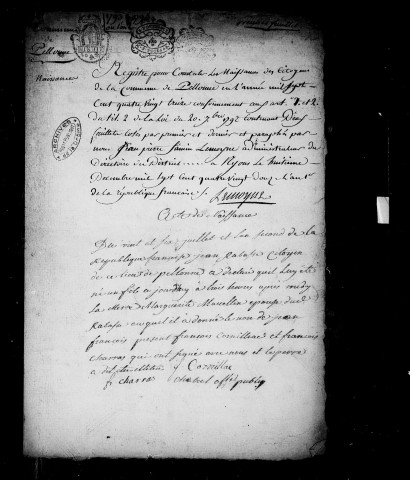 de Pellonne
Naissances
Registre pour Constater les Naissances des Citoyens
de la Commune de Pellonne en l'année mil sept
Cent quatre vingt treize conformement aux art. 1 et 2
du tit. 2 de la loi du 20. 7bre 1792 contenant Deux
feuillets cotés par premier et dernier et paraphés par
nous Jean pierre Lemoyne administrateur du
Directoire du District a Nyons le huitieme
Decembre mil sept Cent quatre vingt Douze l'an 1er
de la république francaise. Lemoyne
Acte de Naissance
Du vint et six juillet et l'an second de la
République francaise jean Rabasse Citoyen
de ce lieu de pellonne a declaré quel luy est
né un fils a jourdhuy a trois heures après midy
la mere Marguerite Marcellin epouse dud.
Rabasse auquel il a donné le nom de jean
françois present françois Cornillac et francois
charras qui ont signés avec nous et le pere
a dit être illiteré f Cornillac
f charras officier public